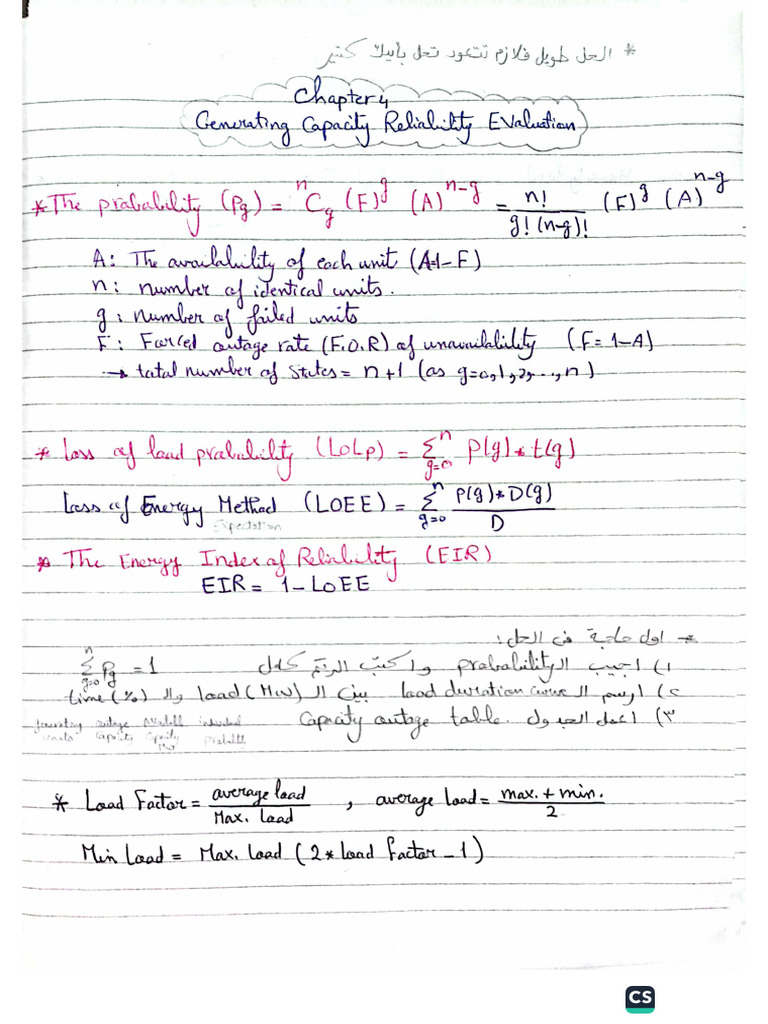 * الحل طويل فلازم تتعود تحل بأيدك كتير
Chapter 4
Generating Capacity Reliability Evaluation
* The probability (Pg) = ⁿC_g (F)^g (A)^{n-g} = n! / g! (n-g)! (F)^g (A)^{n-g}
A: The availability of each unit (A=1-F)
n: number of identical units.
g: number of failed units
F: Forced outage rate (F.O.R) of unavailability (F = 1-A)
→ total number of states = n+1 (as g=0,1,2,...,n)
* Loss of load probability (LOLP) = Σ_{g=0}^{n} P(g) * t(g)
Loss of Energy Method (LOEE) = Σ_{g=0}^{n} P(g)*D(g) / D
Expectation
* The Energy Index of Reliability (EIR)
EIR = 1-LOEE
* اول حاجة فى الحل:
١) اجيب الـ probability واكتب الرقم كامل Σ_{g=0}^{n} Pg = 1
٢) ارسم الـ load duration curve بين الـ load (MW) والـ time (%)
٣) اعمل الجدول Capacity outage table.
generating units outage capacity available capacity individual probability
* Load Factor = average load / Max. Load , average load = max. + min. / 2
Min Load = Max. Load (2 * load factor - 1)
CS